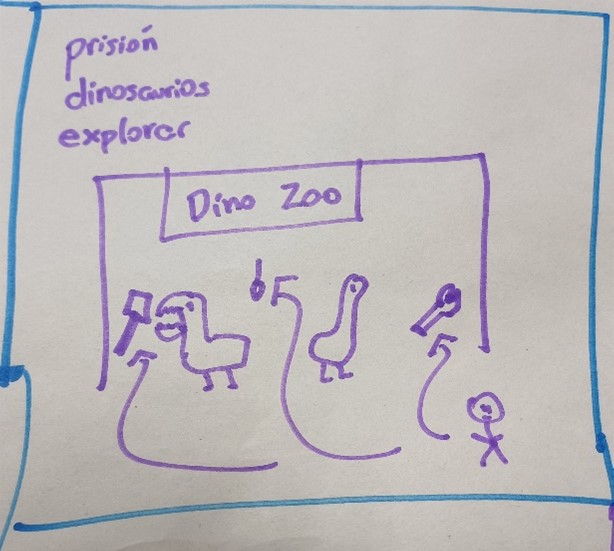 prisión
dinosaurios
explorar
Dino Zoo